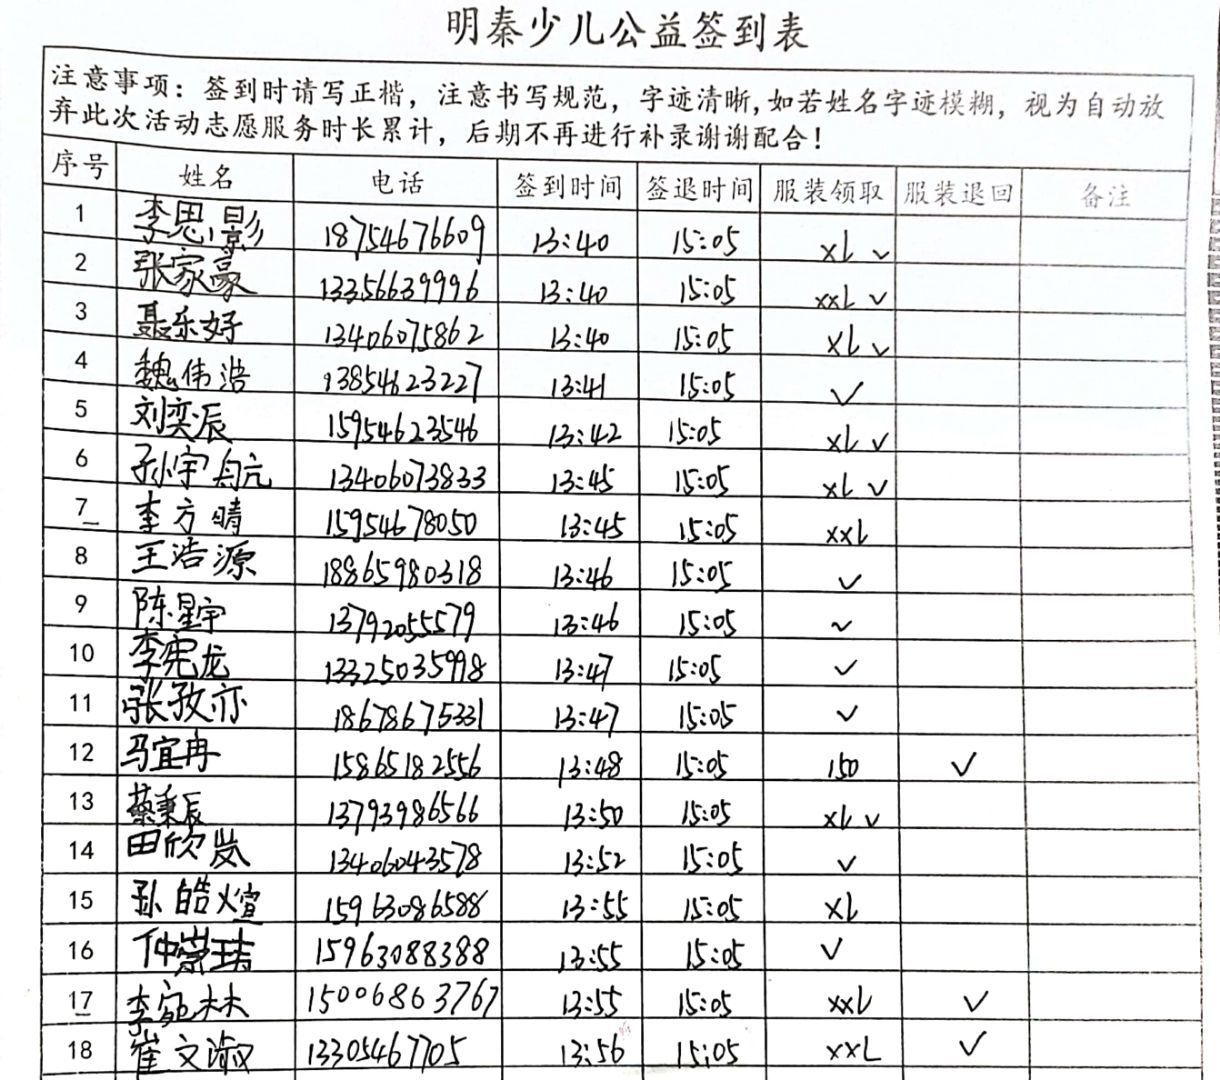 明秦少儿公益签到表
注意事项：签到时请写正楷，注意书写规范，字迹清晰，如若姓名字迹模糊，视为自动放
弃此次活动志愿服务时长累计，后期不再进行补录谢谢配合！
序号 姓名 电话 签到时间 签退时间 服装领取 服装退回 备注
1 李思影 18754676609 13:40 15:05 XL ✓
2 张家豪 13356639996 13:40 15:05 XXL ✓
3 聂乐好 13406075862 13:40 15:05 XL ✓
4 魏伟浩 13854623227 13:41 15:05 ✓
5 刘奕辰 15954623546 13:42 15:05 XL ✓
6 孙宇航 13406073833 13:45 15:05 XL ✓
7 李方晴 15954678050 13:45 15:05 XXL
8 王浩源 18865980318 13:46 15:05 ✓
9 陈星宇 13792055579 13:46 15:05 ✓
10 李宪龙 13325035998 13:47 15:05 ✓
11 张孜亦 18678675331 13:47 15:05 ✓
12 马宜冉 15865182556 13:48 15:05 150 ✓
13 蔡秉辰 13793986566 13:50 15:05 XL ✓
14 田欣岚 13406043578 13:52 15:05 ✓
15 孙皓煊 15963086588 13:55 15:05 XL
16 仲崇靖 15963088388 13:55 15:05 ✓
17 李宛林 15006863767 13:55 15:05 XXL ✓
18 崔文淑 13305467705 13:56 15:05 XXL ✓